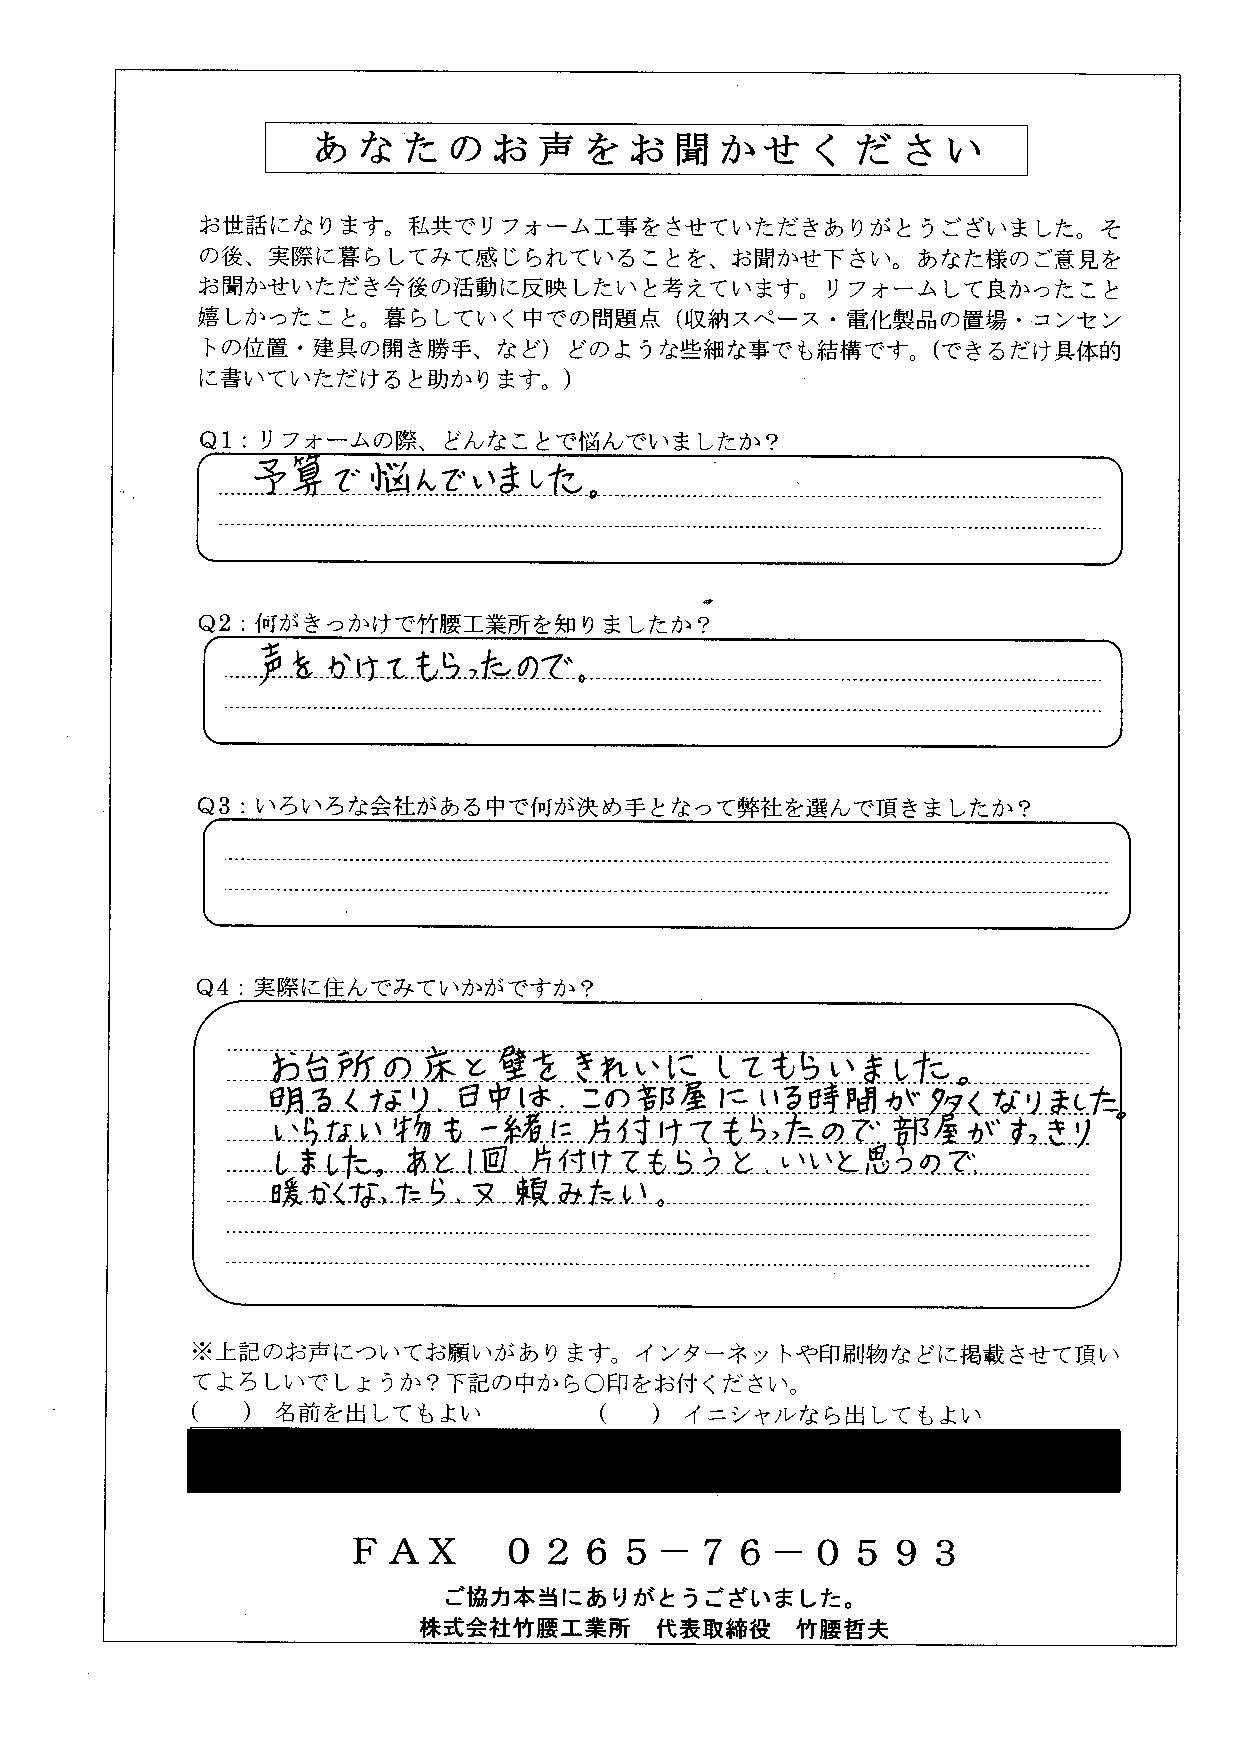 あなたのお声をお聞かせください
お世話になります。私共でリフォーム工事をさせていただきありがとうございました。そ
の後、実際に暮らしてみて感じられていることを、お聞かせ下さい。あなた様のご意見を
お聞かせいただき今後の活動に反映したいと考えています。リフォームして良かったこと
嬉しかったこと。暮らしていく中での問題点（収納スペース・電化製品の置場・コンセン
トの位置・建具の開き勝手、など）どのような些細な事でも結構です。（できるだけ具体的
に書いていただけると助かります。）
Q1：リフォームの際、どんなことで悩んでいましたか？
予算で悩んでいました。
Q2：何がきっかけで竹腰工業所を知りましたか？
声をかけてもらったので。
Q3：いろいろな会社がある中で何が決め手となって弊社を選んで頂きましたか？
Q4：実際に住んでみていかがですか？
お台所の床と壁をきれいにしてもらいました。
明るくなり、日中は、この部屋にいる時間が多くなりました。
いらない物も一緒に片付けてもらったので、部屋がすっきり
しました。あと1回、片付けてもらうと、いいと思うので、
暖かくなったら、又頼みたい。
※上記のお声についてお願いがあります。インターネットや印刷物などに掲載させて頂い
てよろしいでしょうか？下記の中から〇印をお付ください。
（　　）名前を出してもよい　　　　　（　　）イニシャルなら出してもよい
FAX　0265－76－0593
ご協力本当にありがとうございました。
株式会社竹腰工業所　代表取締役　竹腰哲夫